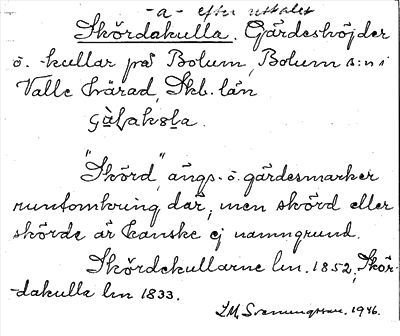 -a- efter uttalet
Skördakulla. Gärdeshöjder
o. kullar på Bolum, Bolum s:n i
Valle härad, Skb. län
"Skörd", ängs- o. gärdesmarker
runtomkring där, men skörd eller
skörde är kanske ej namngrund.
Skördekullarne lm. 1852, Skör-
dakulla lm 1833.
1946.